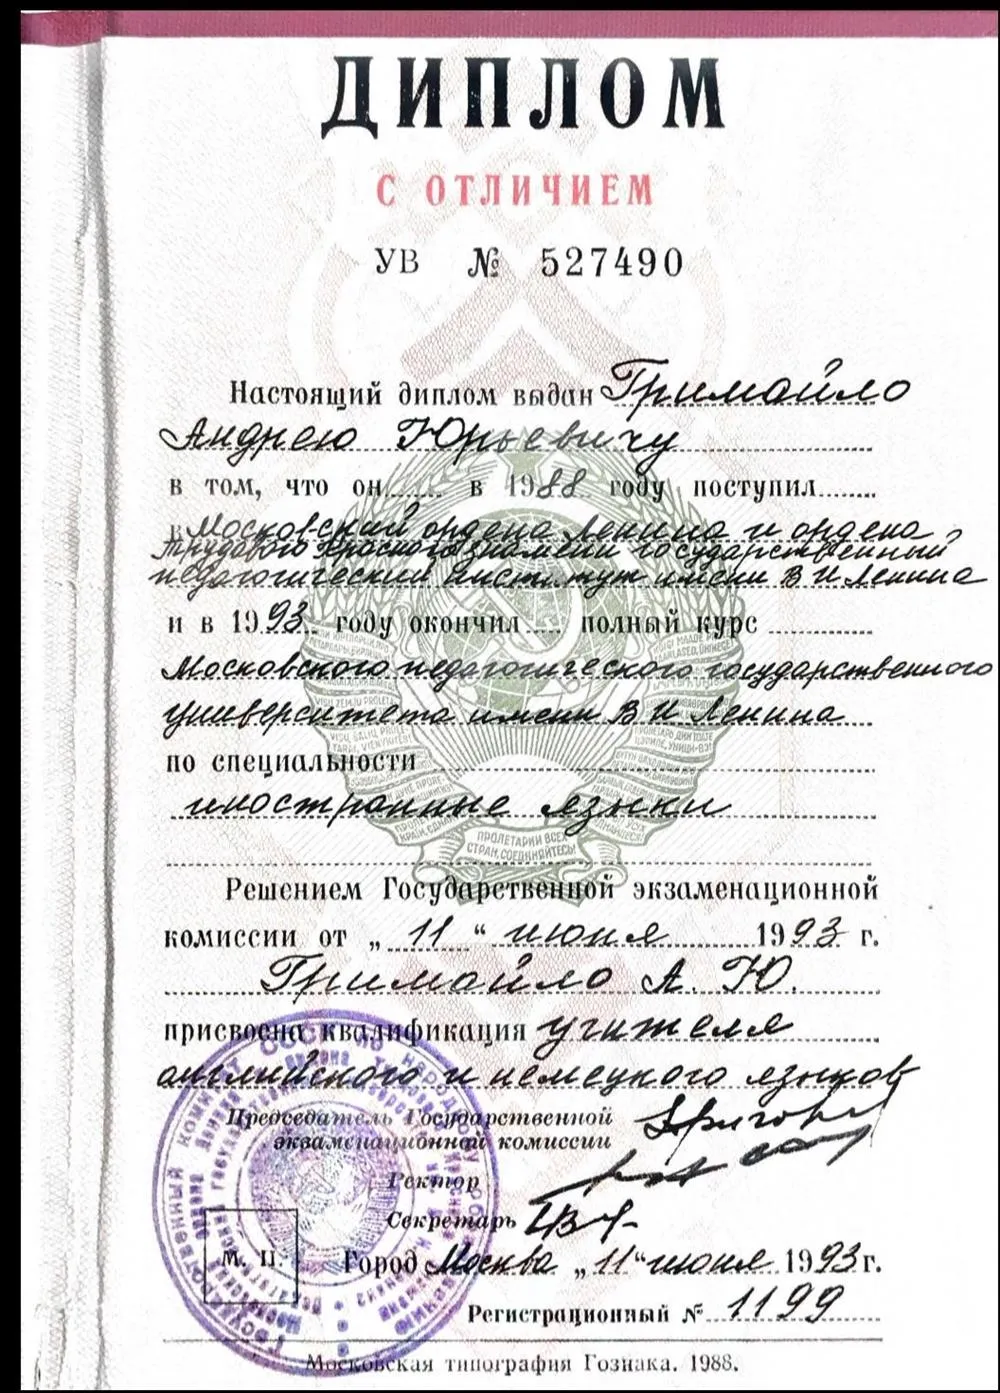 ДИПЛОМ
С ОТЛИЧИЕМ
УВ № 527490
Настоящий диплом выдан Гримайло
Андрею Юрьевичу
в том, что он в 1988 году поступил
в Московский ордена Ленина и ордена
Трудового Красного Знамени государственный
педагогический институт имени В И Ленина
и в 1993 году окончил полный курс
Московского педагогического государственного
университета имени В И Ленина
по специальности
иностранные языки
ПРОЛЕТАРИИ ВСЕХ
СТРАН, СОЕДИНЯЙТЕСЬ!
Решением Государственной экзаменационной
комиссии от „ 11 “ июня 1993 г.
Гримайло А. Ю.
присвоена квалификация учителя
английского и немецкого языков
Председатель Государственной
экзаменационной комиссии
Ректор
Секретарь
М. П. Город Москва „ 11 “ июня 1993 г.
Регистрационный № 1199
Московская типография Гознака. 1988.